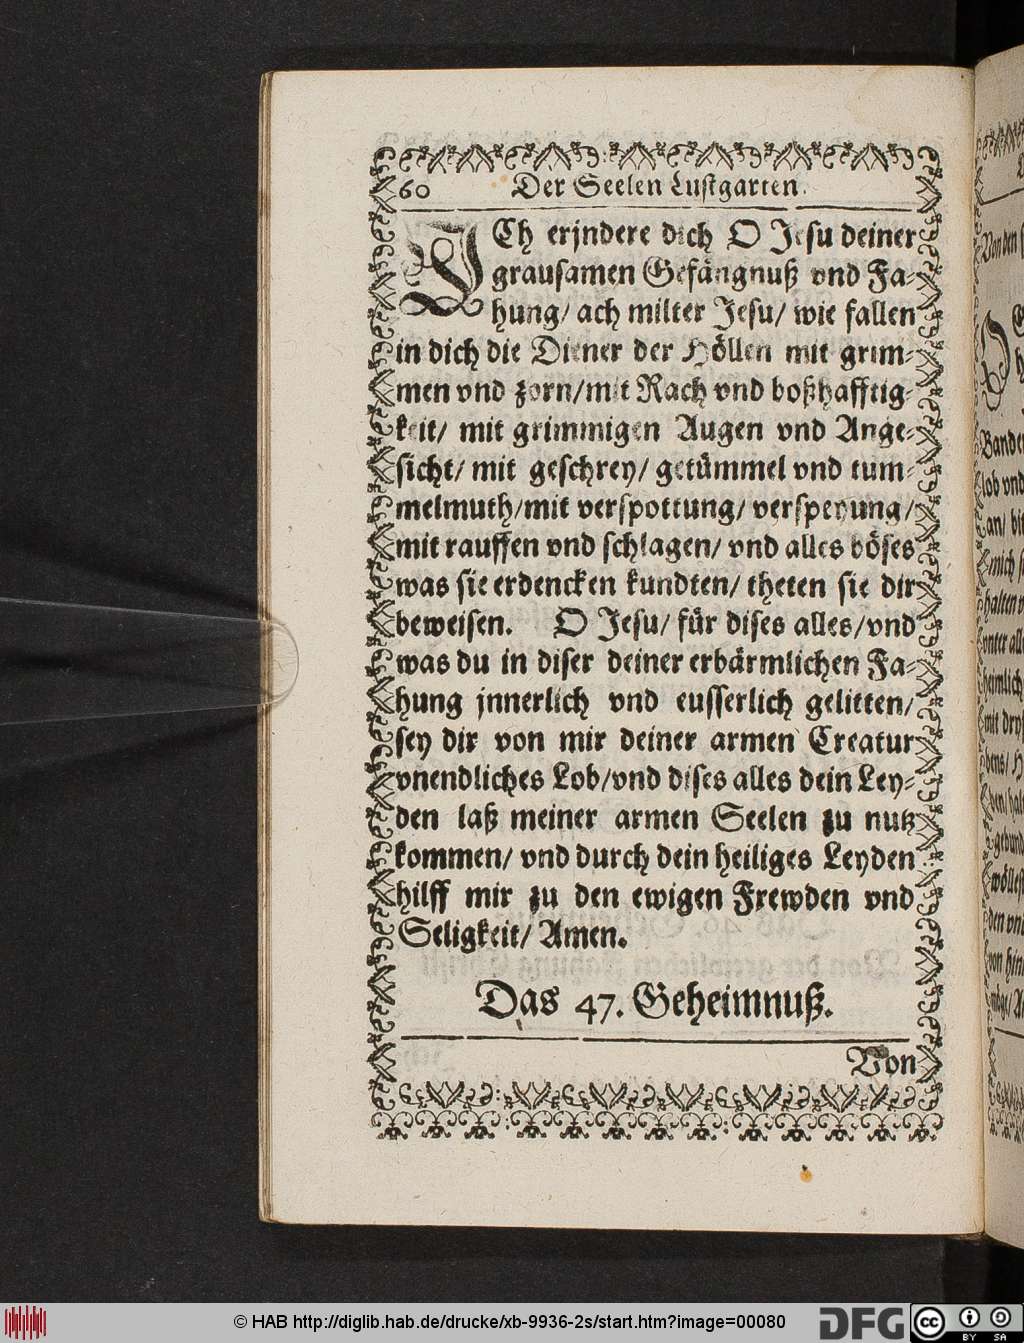 60 Der Seelen Lustgarten.
ICh erjndere dich O Jesu deiner
grausamen Gefängnuß vnd Fa-
hung/ ach milter Jesu/ wie fallen
in dich die Diener der Höllen mit grim-
men vnd zorn/mit Rach vnd boßhafftig-
keit/ mit grimmigen Augen vnd Ange-
sicht/ mit geschrey/ getümmel vnd tum-
melmuth/mit verspottung/ verspeyung/
mit rauffen vnd schlagen/ vnd alles böses
was sie erdencken kundten/ theten sie dir
beweisen. O Jesu/ für dises alles/vnd
was du in diser deiner erbärmlichen Fa-
hung jnnerlich vnd eusserlich gelitten/
sey dir von mir deiner armen Creatur
vnendliches Lob/vnd dises alles dein Ley-
den laß meiner armen Seelen zu nutz
kommen/ vnd durch dein heiliges Leyden
hilff mir zu den ewigen Frewden vnd
Seligkeit/ Amen.
Das 47. Geheimnuß.
Von
Von den
Bande
lob vnd
an/ bi
mich
halten
vnter all
heimlich
mit
gebund
wölle
den vn
von hin
© HAB http://diglib.hab.de/drucke/xb-9936-2s/start.htm?image=00080
DFG
cc BY SA